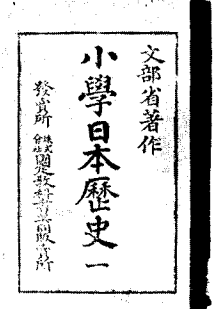 文部省著作
小學日本歷史 一
發賣所 株式會社國定敎科書共同販賣所